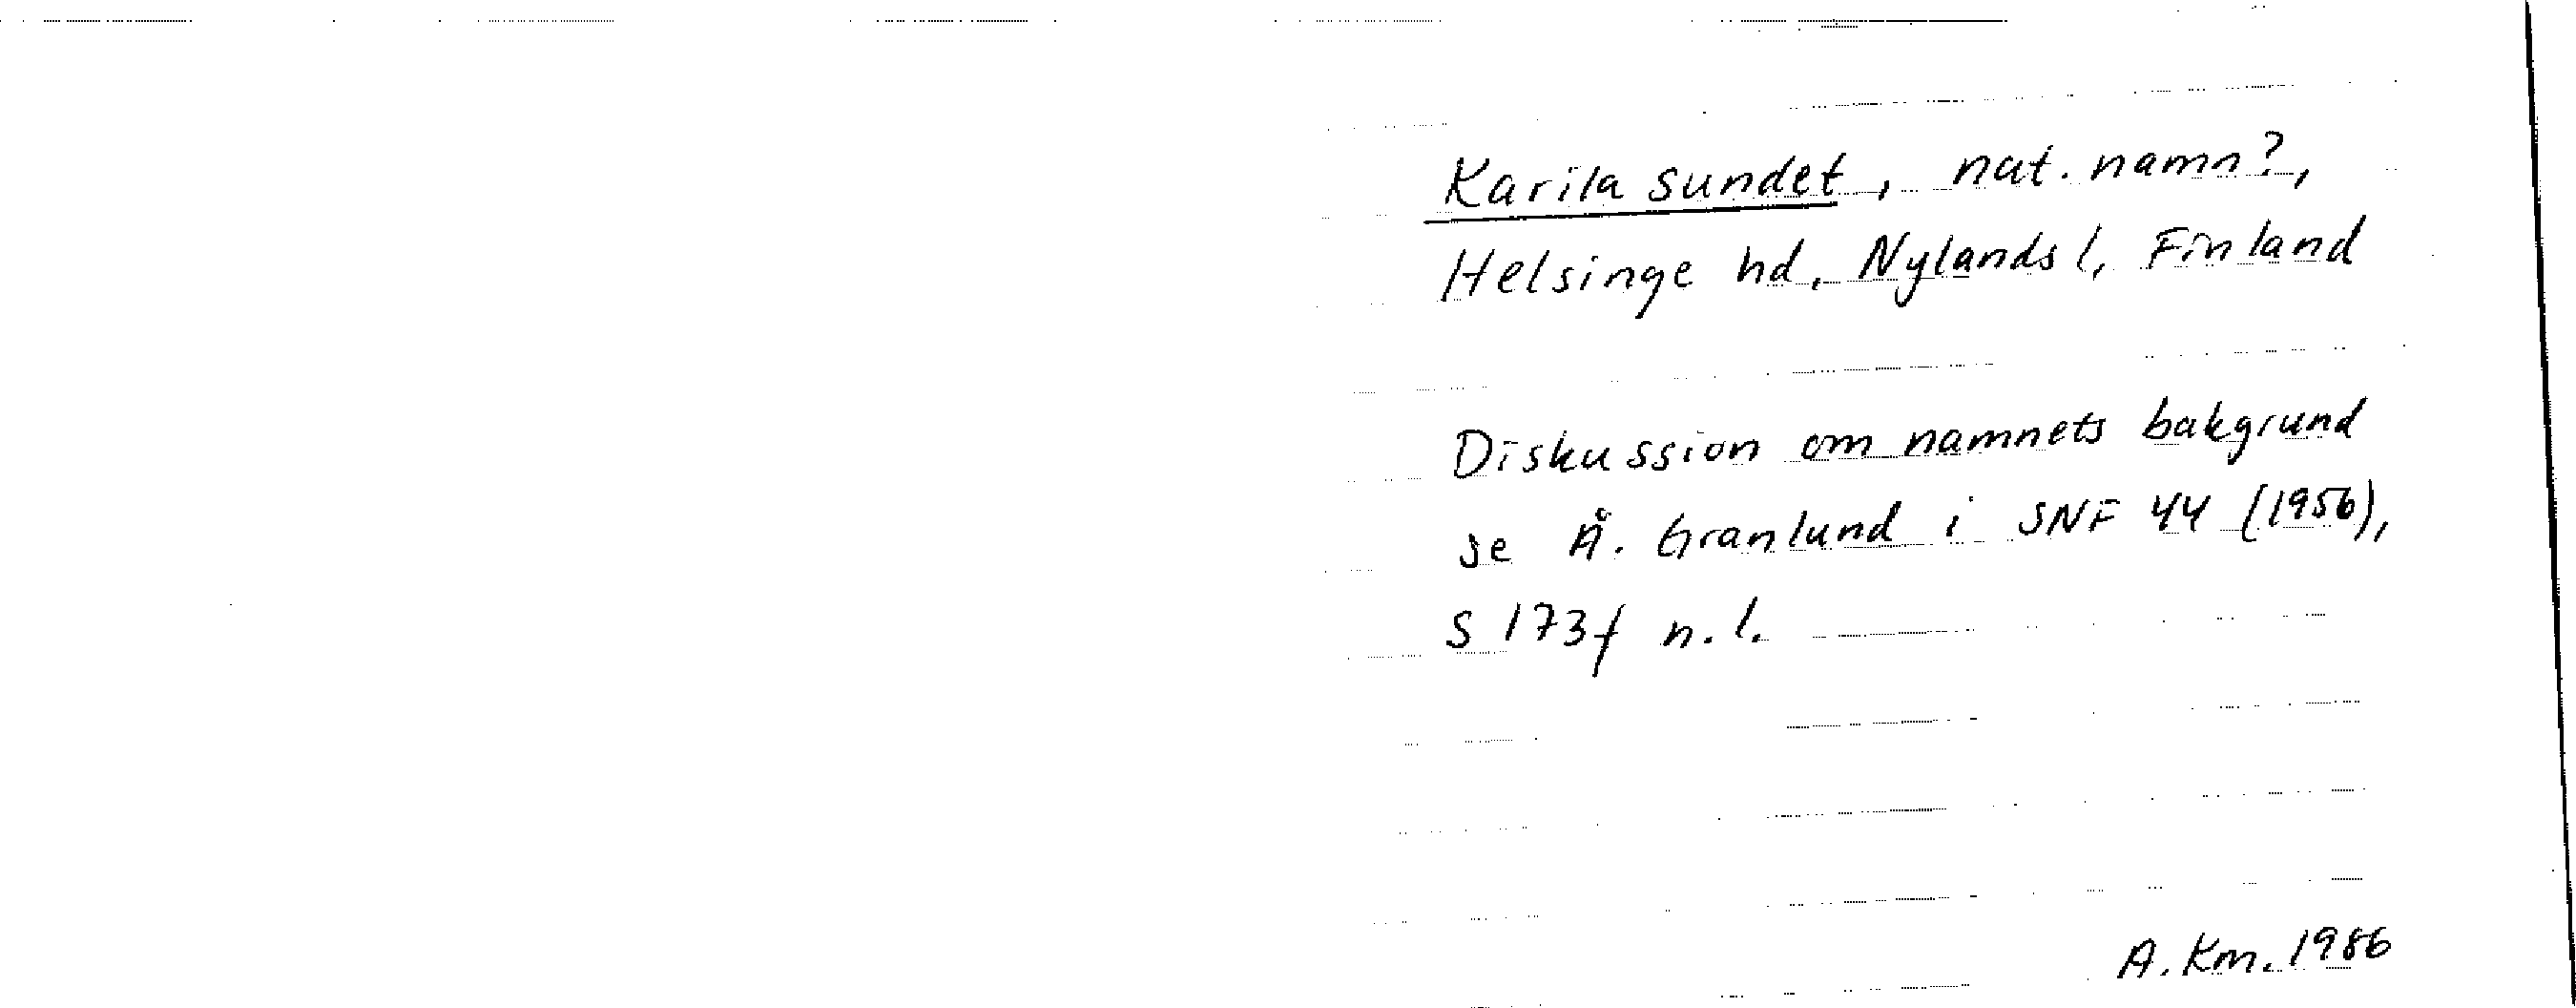 Karila sundet, nat. namn?,
Helsinge hd, Nylands l, Finland
Diskussion om namnets bakgrund
se Å. Granlund i SNF 44 (1956),
s 173f n.l.
A. Km. 1986